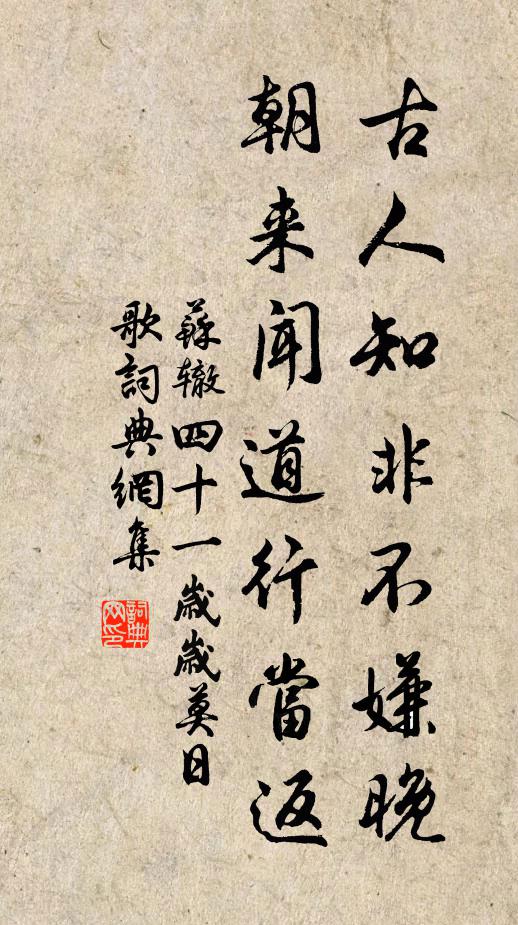 古人知非不嫌晚
朝来闻道行當返
蘇辙四十一歲歲莫日
歌詞典網集
詞典网印